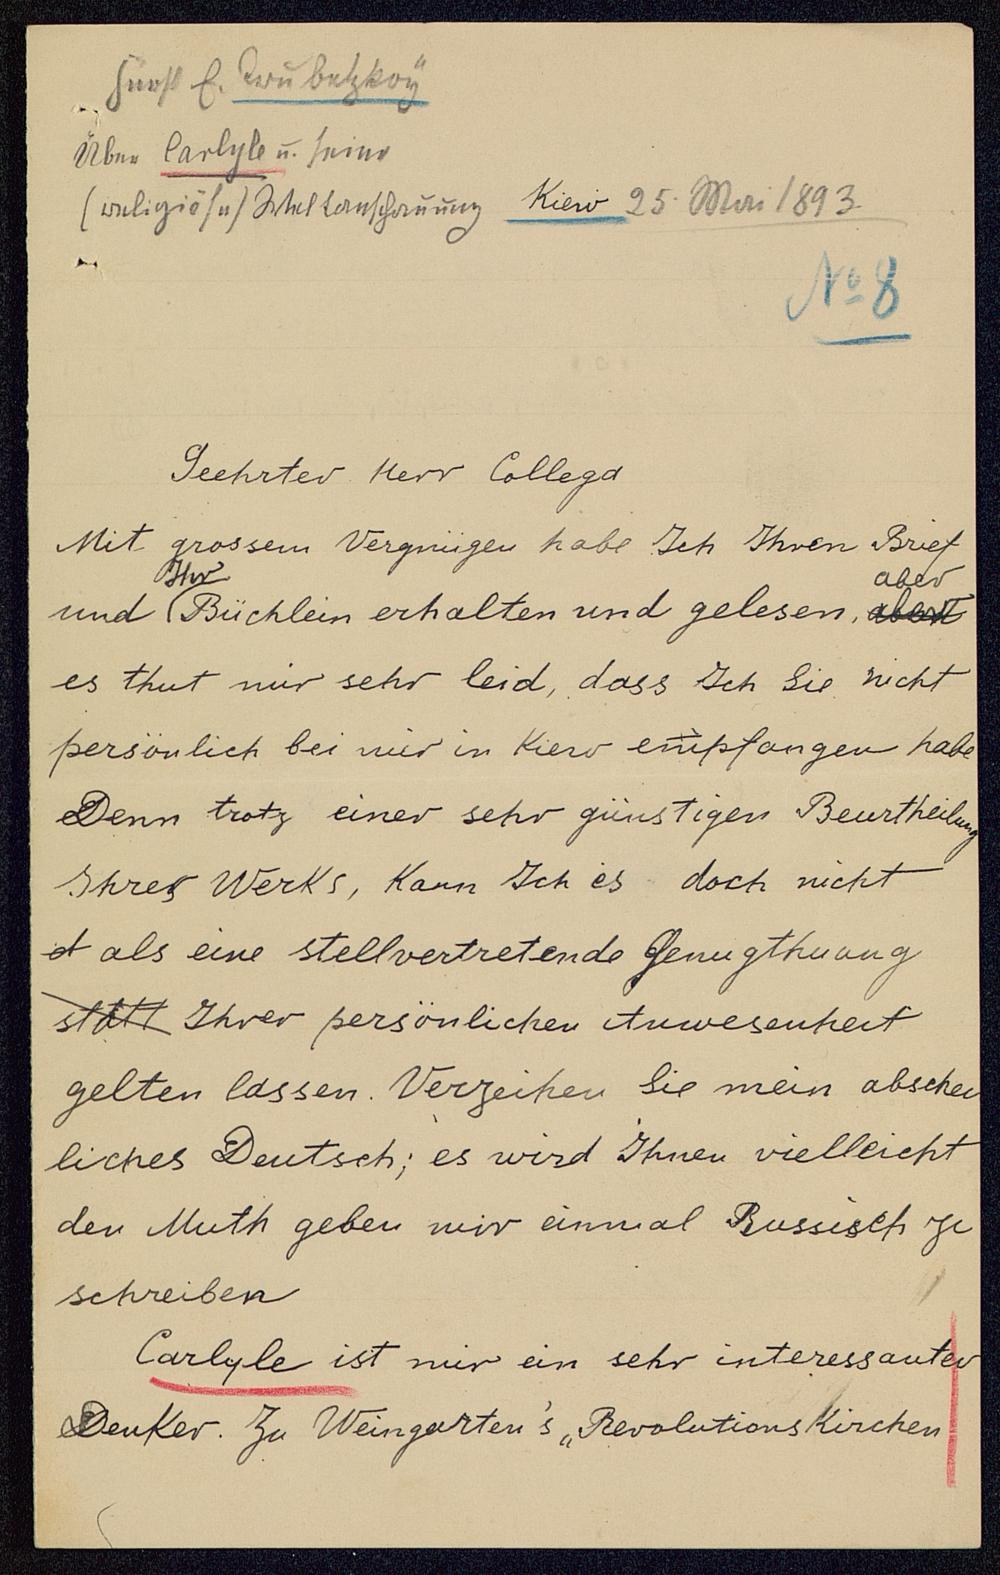 Fürst E. Trubetzkoy
Über Carlyle u. seine
(religiöse) Weltanschauung Kiew 25. Mai 1893
No 8
Geehrter Herr Collega
Mit grossem Vergnügen habe Ich Ihren Brief
und Ihr Büchlein erhalten und gelesen, aber
es thut mir sehr leid, dass Ich Sie nicht
persönlich bei mir in Kiew empfangen habe
Denn trotz einer sehr günstigen Beurtheilung
Ihres Werks, kann Ich es doch nicht
als eine stellvertretende Genugthuung
statt Ihrer persönlichen Anwesenheit
gelten lassen. Verzeihen Sie mein abscheu
liches Deutsch; es wird Ihnen vielleicht
den Muth geben mir einmal Russisch zu
schreiben
Carlyle ist mir ein sehr interessanter
Denker. Zu Weingarten's „Revolutionskirchen